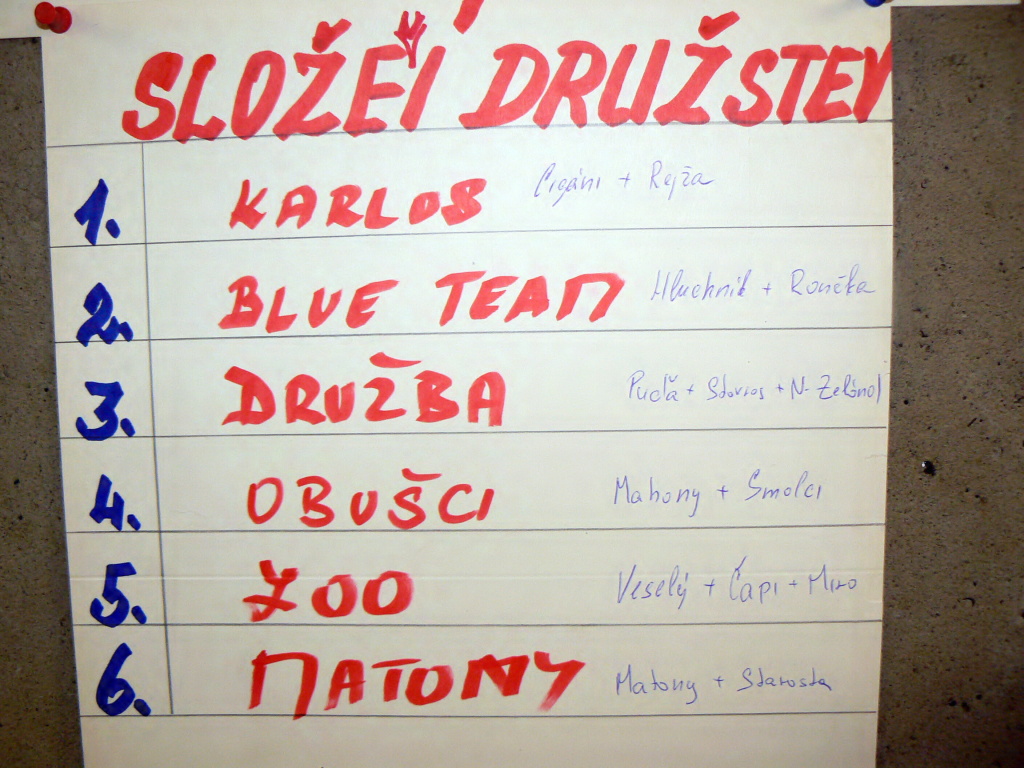 SLOŽEÍ DRUŽSTEV
1. KARLOS Cigáni + Rejža
2. BLUE TEAM Hluchnik + Ronička
3. DRUŽBA Puďa + Stavros + N-Zeland
4. OBUŠCI Mahony + Smolci
5. ZOO Veselý + Čapi + Miro
6. MATONY Matony + Starosta